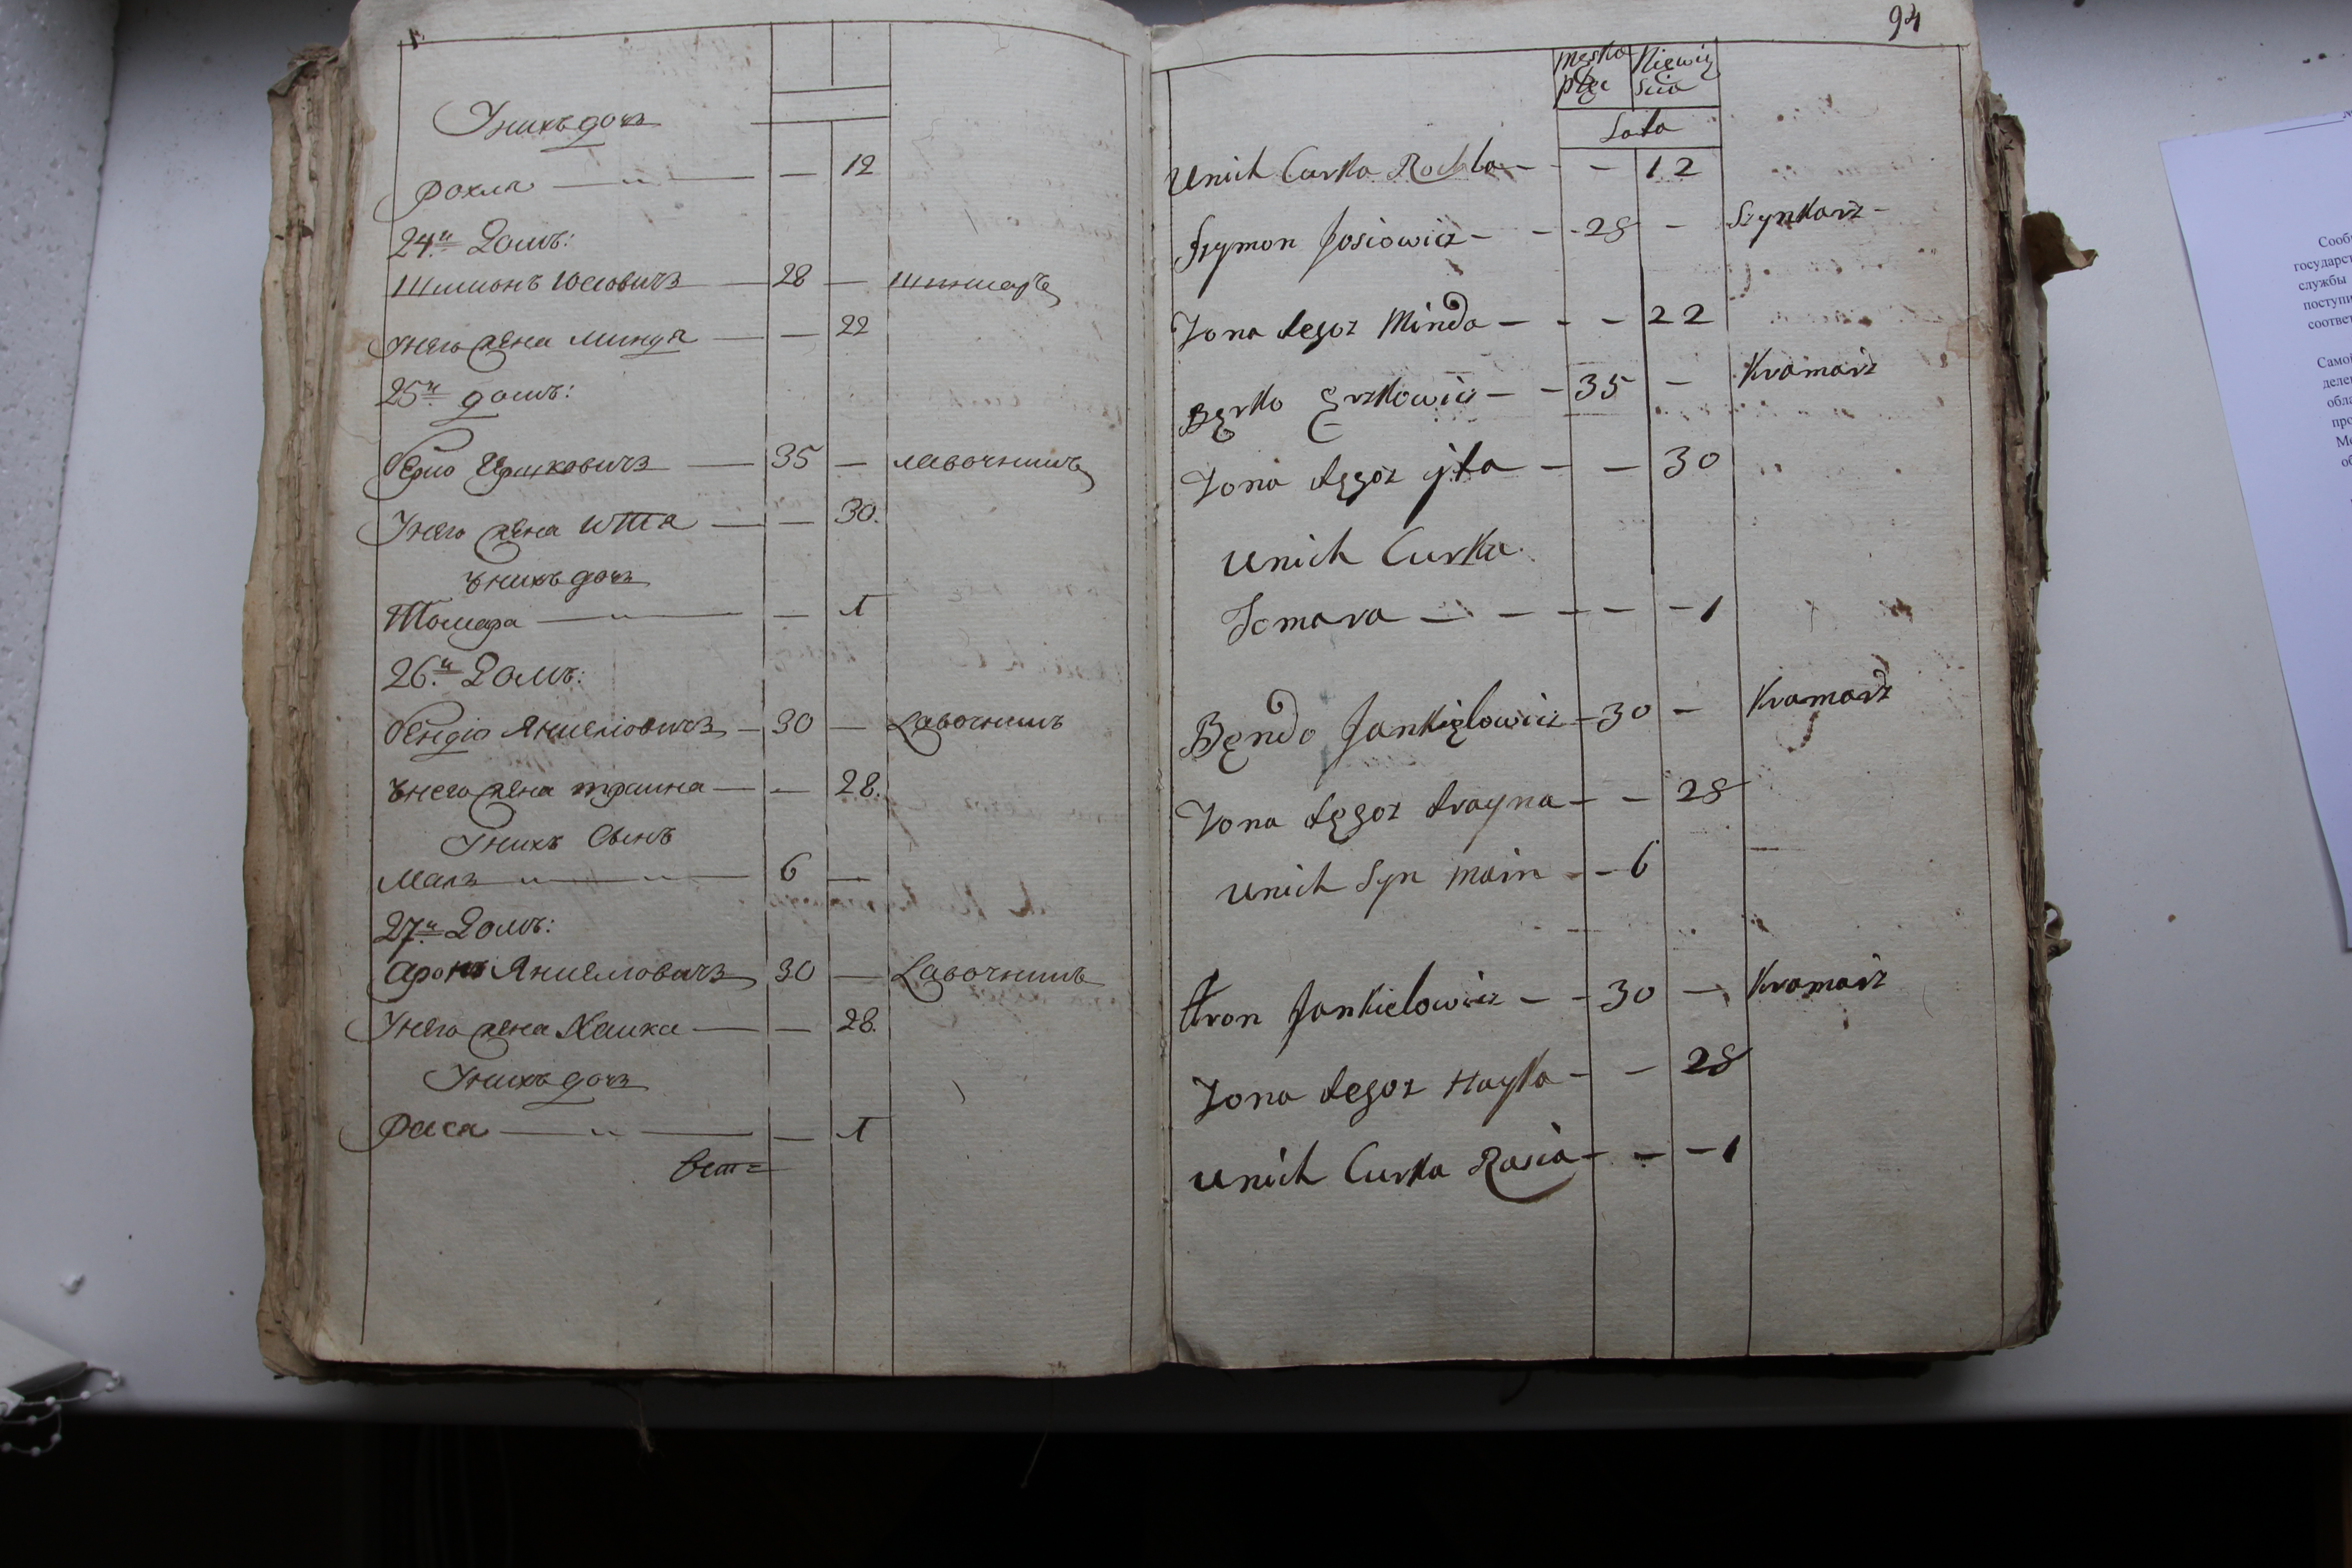 Унихъ дочь
Рохля — „ — — 12
24й Домъ:
Шимонъ Иосiовичъ — 28 — шинкарь
Унего жена Миндя — — 22
25й домъ:
берко Ершковичъ — 35 — лавочникъ
Унего жена итта — — 30.
Унихъ дочь
Томара — „ — — 1
26й Домъ:
бендiо Янкелiовичъ — 30 — Лавочникъ
Унего жена траина — — 28.
Унихъ Сынъ
Маль — „ — „ — 6 —
27й Домъ:
Аронъ Янкелiовичъ 30 — Лавочникъ
Унего жена Хаика — — 28.
Унихъ дочь
Рася — „ — — 1
94
męska płec
Niewiy scia
Lata
Unich Curka Rochla - - - 12
Szymon Josiowicz - - 28 - Szynkarz -
Zona tegoz Minda - - - 22
Bęrko Ęrzkowicz - - 35 - Kramarz
Zona tęgoz jta - - 30
Unich Curka
Tomara - - - - - 1
Bęndo Jankięlowicz - 30 - Kramarz
Zona tęgoz trayna - - 28
Unich Syn Main - - 6
Aron Jankielowicz - - 30 - Kramarz
Zona tegoz Hayka - - 28
Unich Curka Rasia - - - 1